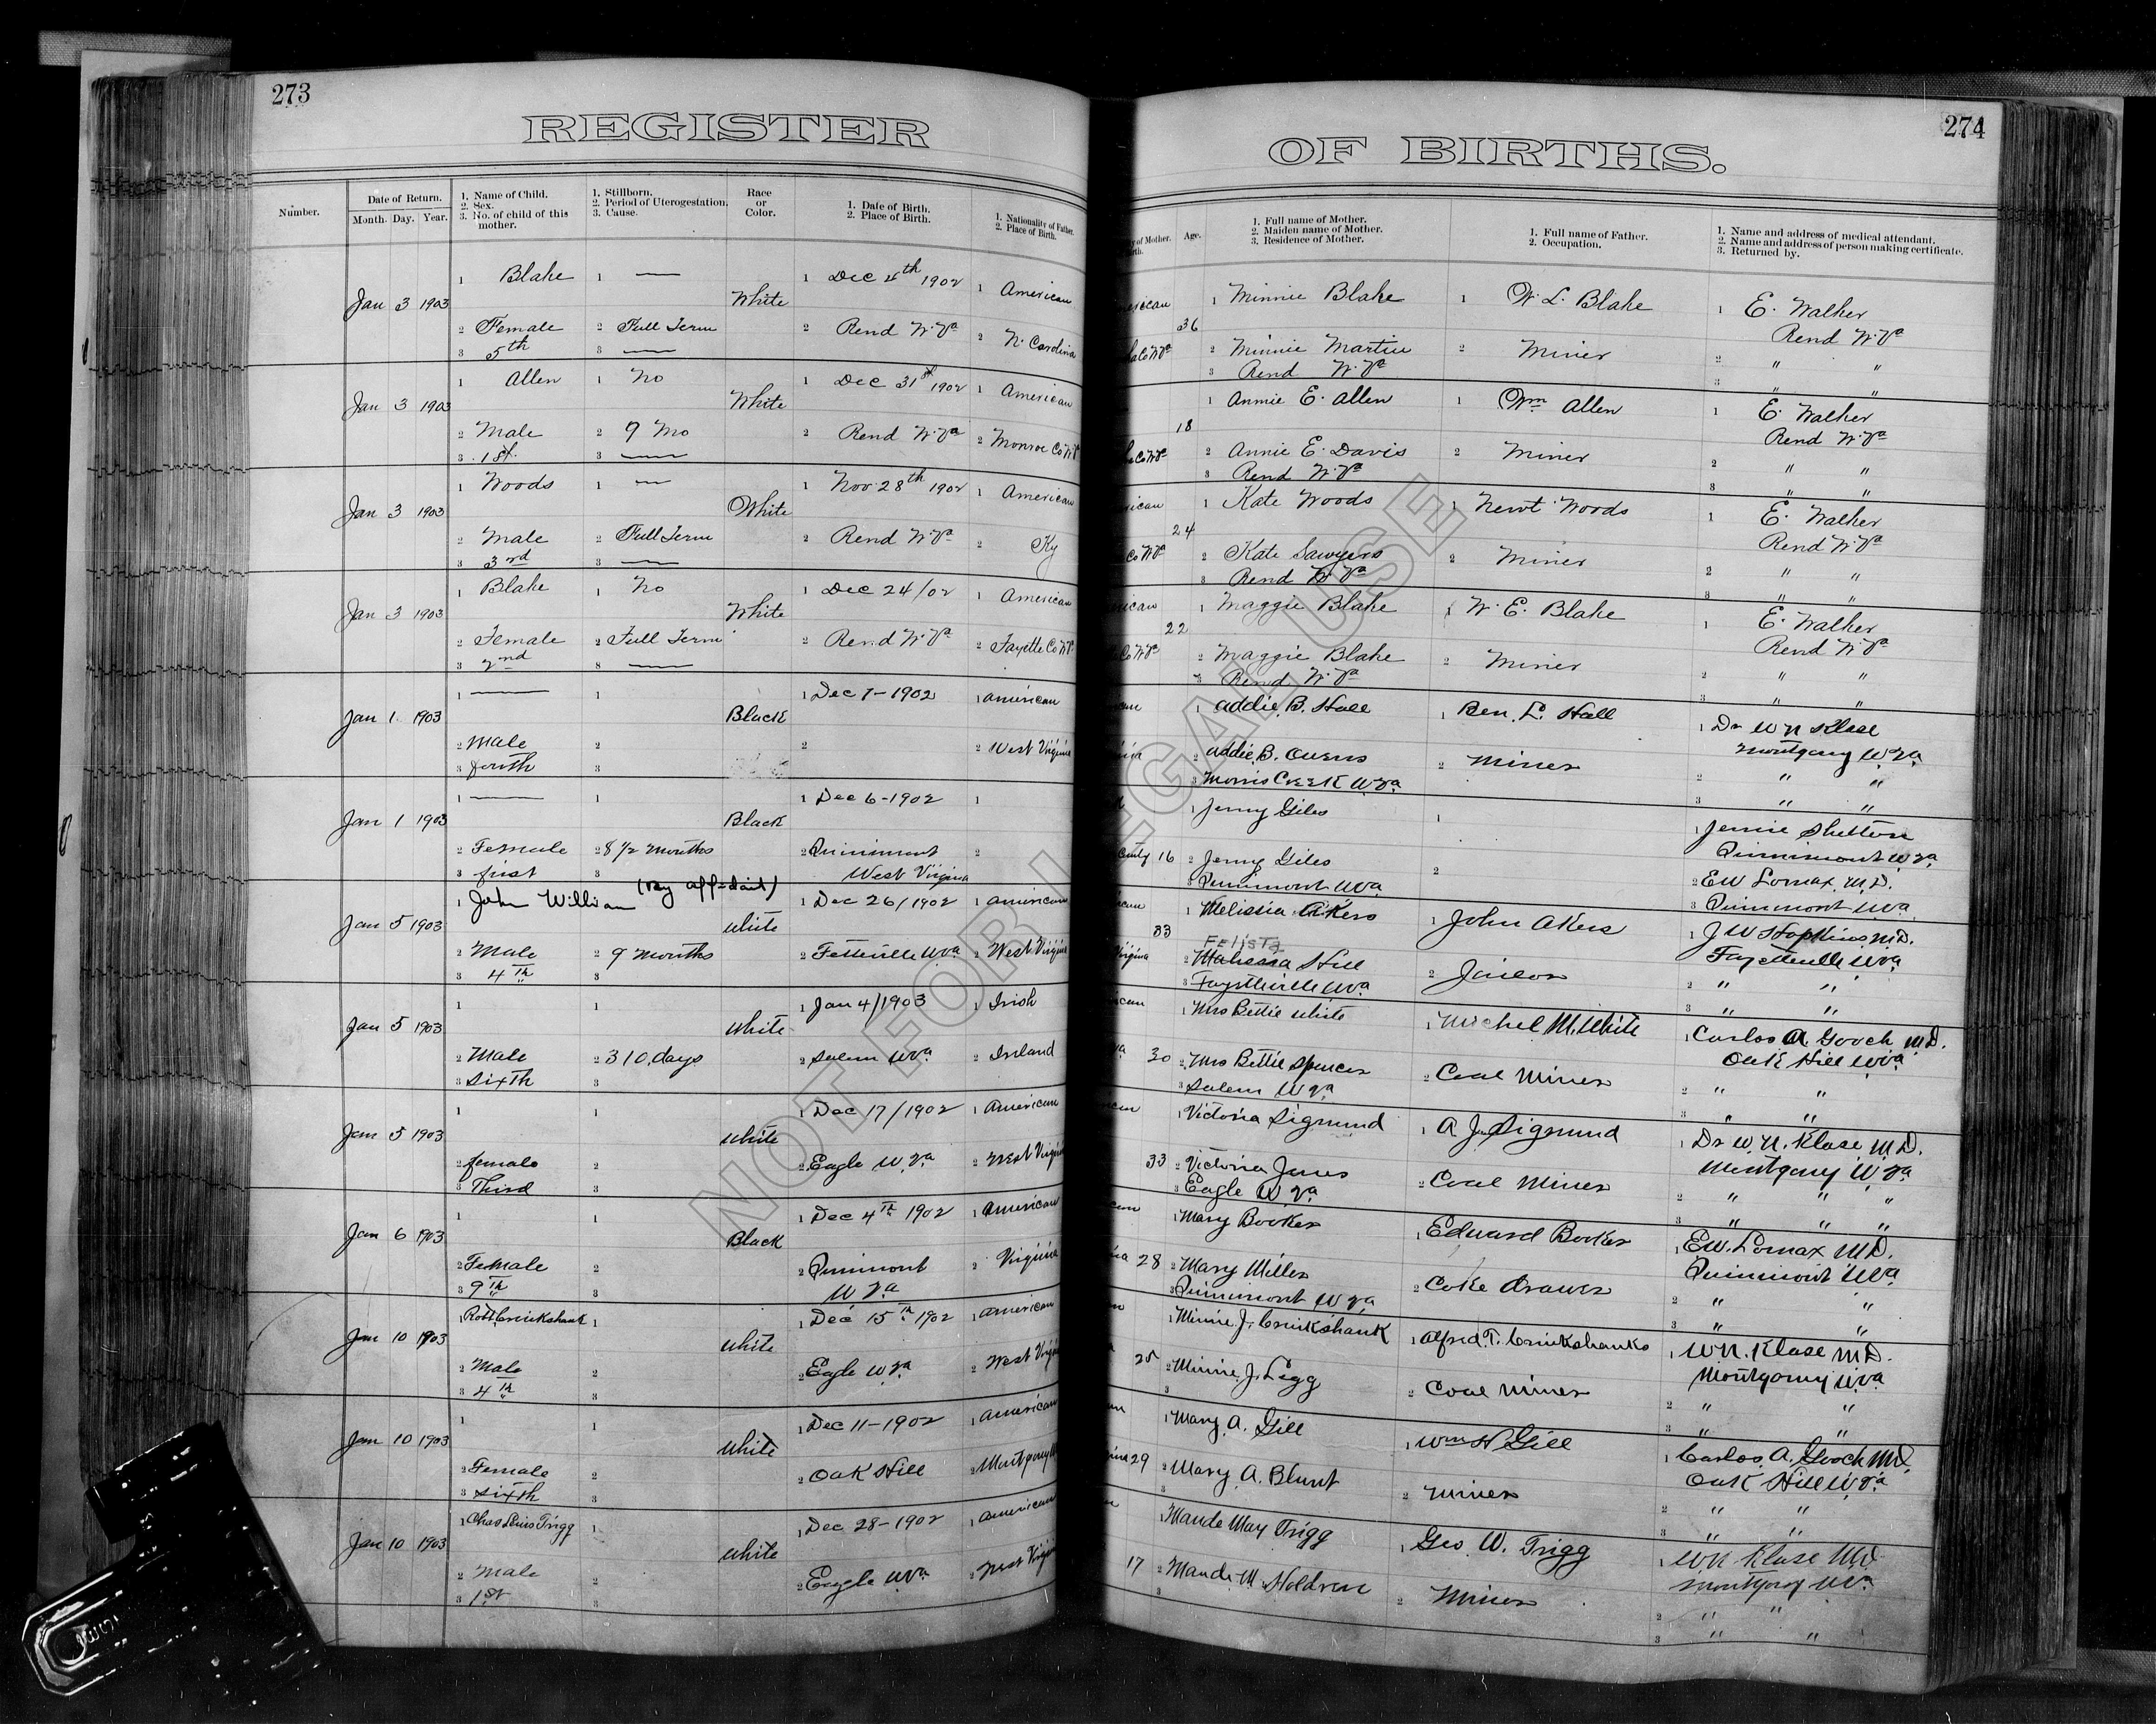 273
REGISTER
OF BIRTHS.
274
Number.
Date of Return.
Month. Day. Year.
1. Name of Child.
2. Sex.
3. No. of child of this
mother.
1. Stillborn.
2. Period of Uterogestation.
3. Cause.
Race
or
Color.
1. Date of Birth.
2. Place of Birth.
1. Nationality of Father.
2. Place of Birth.
y of Mother.
irth.
Age.
1. Full name of Mother.
2. Maiden name of Mother.
3. Residence of Mother.
1. Full name of Father.
2. Occupation.
1. Name and address of medical attendant.
2. Name and address of person making certificate.
3. Returned by.
1 Blake 1 — 1 Dec 4th 1902 1 American 1 Minnie Blake 1 W. L. Blake 1 E. Walker
Jan 3 1903 White 36 Rend W. Va
2 Female 2 Full Term 2 Rend W. Va 2 N. Carolina 2 Minnie Martin 2 Miner 2 " "
3 5th 3 — 3 Rend W. Va 3 " "
1 Allen 1 No 1 Dec 31st 1902 1 American 1 Annie E. Allen 1 Wm Allen 1 E. Walker
Jan 3 1903 White 18 Rend W. Va
2 Male 2 9 Mo 2 Rend W. Va 2 Monroe Co W. Va 2 Annie E. Davis 2 Miner 2 " "
3 1st 3 — 3 Rend W. Va 3 " "
1 Woods 1 — 1 Nov 28th 1902 1 American 1 Kate Woods 1 Newt Woods 1 E. Walker
Jan 3 1903 White 24 Rend W. Va
2 Male 2 Full Term 2 Rend W. Va 2 Ky 2 Kate Sawyers 2 Miner 2 " "
3 3rd 3 — 3 Rend W. Va 3 " "
1 Blake 1 No 1 Dec 24/02 1 American 1 Maggie Blake 1 W. E. Blake 1 E. Walker
Jan 3 1903 White 22 Rend W. Va
2 Female 2 Full Term 2 Rend W. Va 2 Fayette Co W. Va 2 Maggie Blake 2 Miner 2 " "
3 2nd 3 — 3 Rend W. Va 3 " "
1 — 1 1 Dec 7-1902 1 American 1 Addie B. Hall 1 Ben. L. Hall 1 Dr W N Klase
Jan 1 1903 Black Montgomy W Va
2 Male 2 2 2 West Virginia 2 Addie B. Owens 2 Miner 2 " "
3 fourth 3 3 Morris Creek W Va 3 " "
1 — 1 1 Dec 6-1902 1 1 Jenny Giles 1 1 Jennie Shelton
Jan 1 1903 Black 16 Quinnimont W Va
2 Female 2 8 1/2 months 2 Quinnimont 2 2 Jenny Giles 2 2 E W Lomax M.D.
3 first 3 West Virginia 3 Quinnimont W Va 3 Quinnimont W Va
1 John William (by affidait) 1 Dec 26/1902 1 American 1 Melissia Akers 1 John Akers 1 J W Hopkins M.D.
Jan 5 1903 White 33 FELISTA Fayetteville W Va
2 Male 2 9 months 2 Fetteville W Va 2 West Virginia 2 Malissia Hill 2 Jailor 2 " "
3 4th 3 3 Fayetteville W Va 3 " "
1 1 1 Jan 4/1903 1 Irish 1 Mrs Bettie White 1 Michel M. White 1 Carlos A. Gooch M.D.
Jan 5 1903 White 30 Oak Hill W Va
2 Male 2 310 days 2 Salem W Va 2 Ireland 2 Mrs Bettie Spencer 2 Coal Miner 2 " "
3 Sixth 3 3 Salem W Va 3 " "
1 1 1 Dec 17/1902 1 American 1 Victoria Sigmund 1 A J Sigmund 1 Dr W. N. Klase M.D.
Jan 5 1903 White 33 Montgomy W Va
2 female 2 2 Eagle W Va 2 West Virginia 2 Victoria Jones 2 Coal Miner 2 " " "
3 Third 3 3 Eagle W Va 3 " " "
1 1 1 Dec 4th 1902 1 American 1 Mary Booker 1 Edward Booker 1 E W. Lomax M.D.
Jan 6 1903 Black 28 Quinnimont W Va
2 Female 2 2 Quinnimont 2 Virginia 2 Mary Miller 2 Coke Drawer 2 " "
3 9th 3 W Va 3 Quinnimont W Va 3 " "
1 Robt Cruikshank 1 1 Dec 15th 1902 1 American 1 Minnie J. Cruikshank 1 Alfred T. Cruikshanks 1 W N. Klase M.D.
Jan 10 1903 White 25 Montgomy W Va
2 Male 2 2 Eagle W Va 2 West Virginia 2 Minnie J. Legg 2 Coal Miner 2 " "
3 4th 3 3 3 " "
1 1 1 Dec 11-1902 1 American 1 Mary A. Gill 1 Wm H Gill 1 Carlos A. Gooch M.D.
Jan 10 1903 White 29 Oak Hill W Va
2 Female 2 2 Oak Hill 2 2 Mary A. Blunt 2 Miner 2 " "
3 Sixth 3 3 3 " "
1 Chas Lewis Trigg 1 1 Dec 28-1902 1 American 1 Maude May Trigg 1 Geo W. Trigg 1 W N Klase M.D.
Jan 10 1903 White 17 Montgomy W Va
2 Male 2 2 Eagle W Va 2 West Virginia 2 Maude M. Holdren 2 Miner 2 " "
3 1st 3 3 3 " "
NOT FOR LEGAL USE